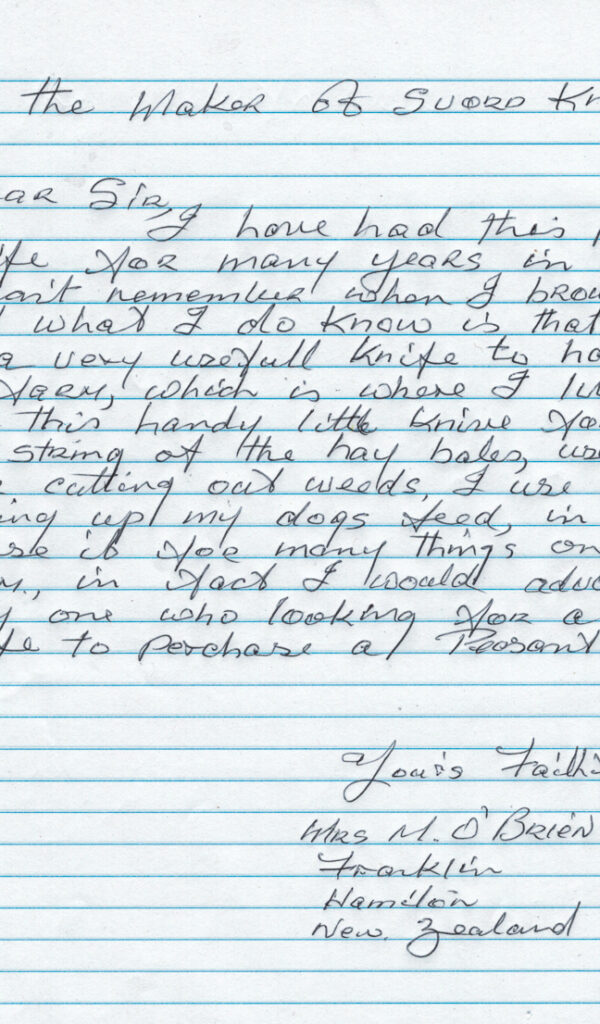 the Maker Of SVORD Kn
ar Sir,
I have had this
ife for many years in
an't remember when I brou
what I do know is that
a very usefull knife to ha
farm, which is where I li
this handy little knive for
string of the hay bales, us
cutting out weeds, I use
ing up my dogs feed, in
use it for many things on
, in fact I would advi
y one who looking for a
fe to perchase a Peasant
Yours Faith
Mrs M. O'Brien
Franklin
Hamilon
New. Zealand